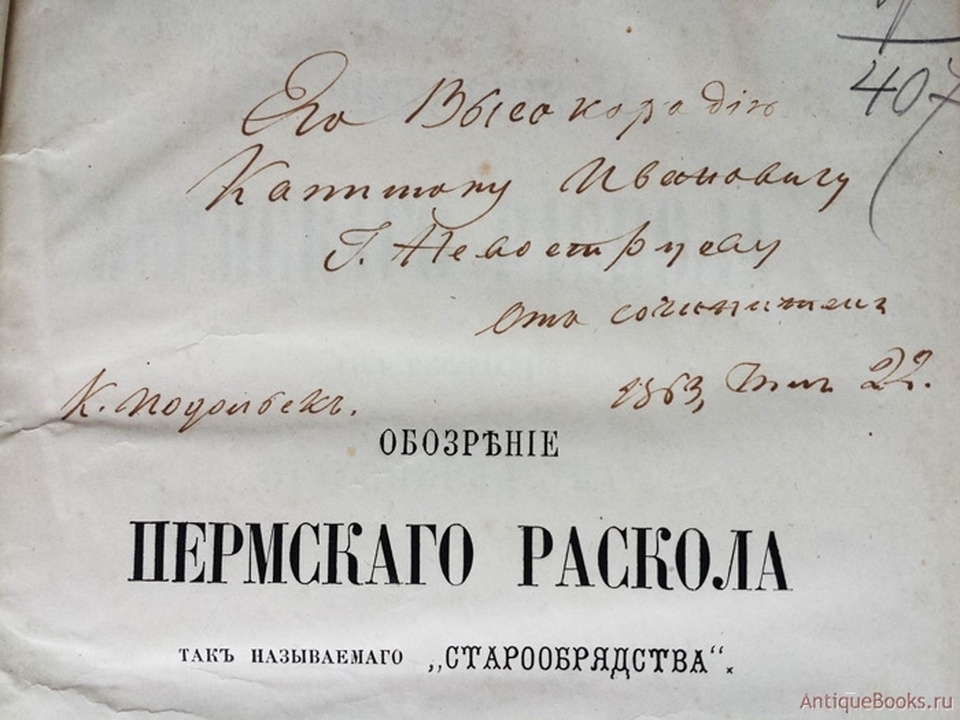 407
Его Высокородію
Капитону Ивановичу
Г. Невоструеву
отъ сочинителя
К. Подольскъ.
1863, Юля 22.
ОБОЗРѢНІЕ
ПЕРМСКАГО РАСКОЛА
ТАКЪ НАЗЫВАЕМАГО „СТАРООБРЯДСТВА“.
AntiqueBooks.ru